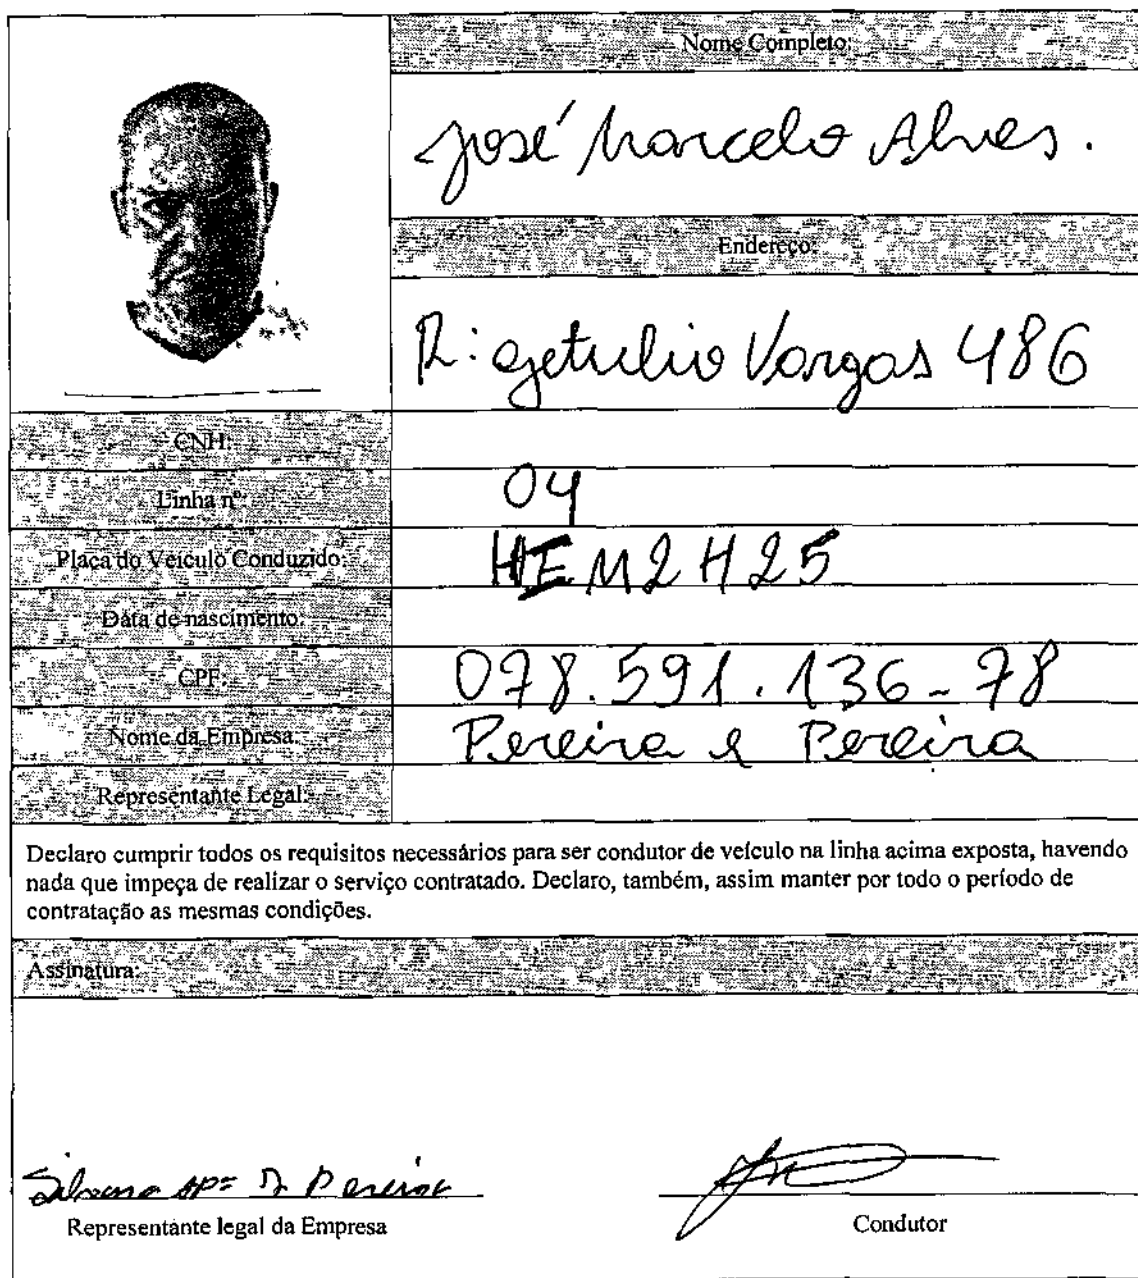 Nome Completo:
José Marcelo Alves.
Endereço:
R: getulio Vargas 486
CNH:
Linha nº: 04
Placa do Veículo Conduzido: HEM2H25
Data de nascimento:
CPF: 078.591.136-78
Nome da Empresa: Pereira e Pereira
Representante Legal:
Declaro cumprir todos os requisitos necessários para ser condutor de veículo na linha acima exposta, havendo
nada que impeça de realizar o serviço contratado. Declaro, também, assim manter por todo o período de
contratação as mesmas condições.
Assinatura:
Pereira
Representante legal da Empresa
Condutor